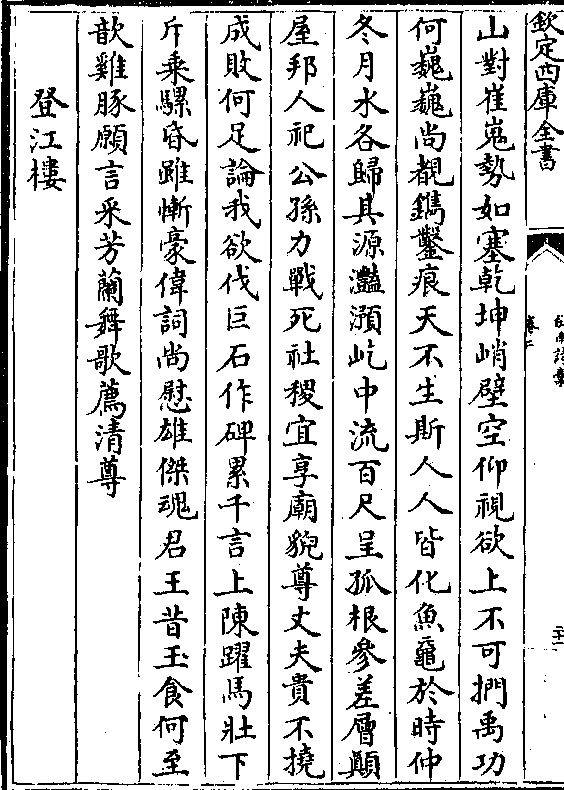 欽定四庫全書
山對崔嵬勢如塞乾坤峭壁空仰視欲上不可捫禹功
何巍巍尚覩鐫鑿痕天不生斯人人皆化魚黿於時仲
冬月水各歸其源灩澦屹中流百尺呈孤根參差層顛
屋邦人祀公孫力戰死社稷宜享廟貌尊丈夫貴不撓
成敗何足論我欲伐巨石作碑累千言上陳躍馬壯下
斥乘騾昏雖慚豪偉詞尚慰雄傑魂君王昔玉食何至
歆雞豚願言采芳蘭舞歌薦清尊
登江樓